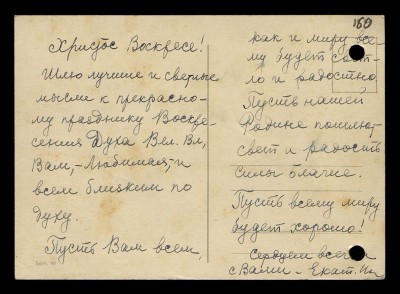 169
Христос Воскресе!
Шлю лучшие и светлые
мысли к прекрасно-
му празднику Воскре-
сения Духа Вел. Вл,
Вам, – Любимая, и
всем близким по
духу.
Пусть Вам всем,
как и миру все-
му будет свет-
ло и радостно,
Пусть нашей
Родине пошлют
свет и радость
силы благие.
Пусть всему миру
будет хорошо!
Сердцем всегда
с Вами – Екат.